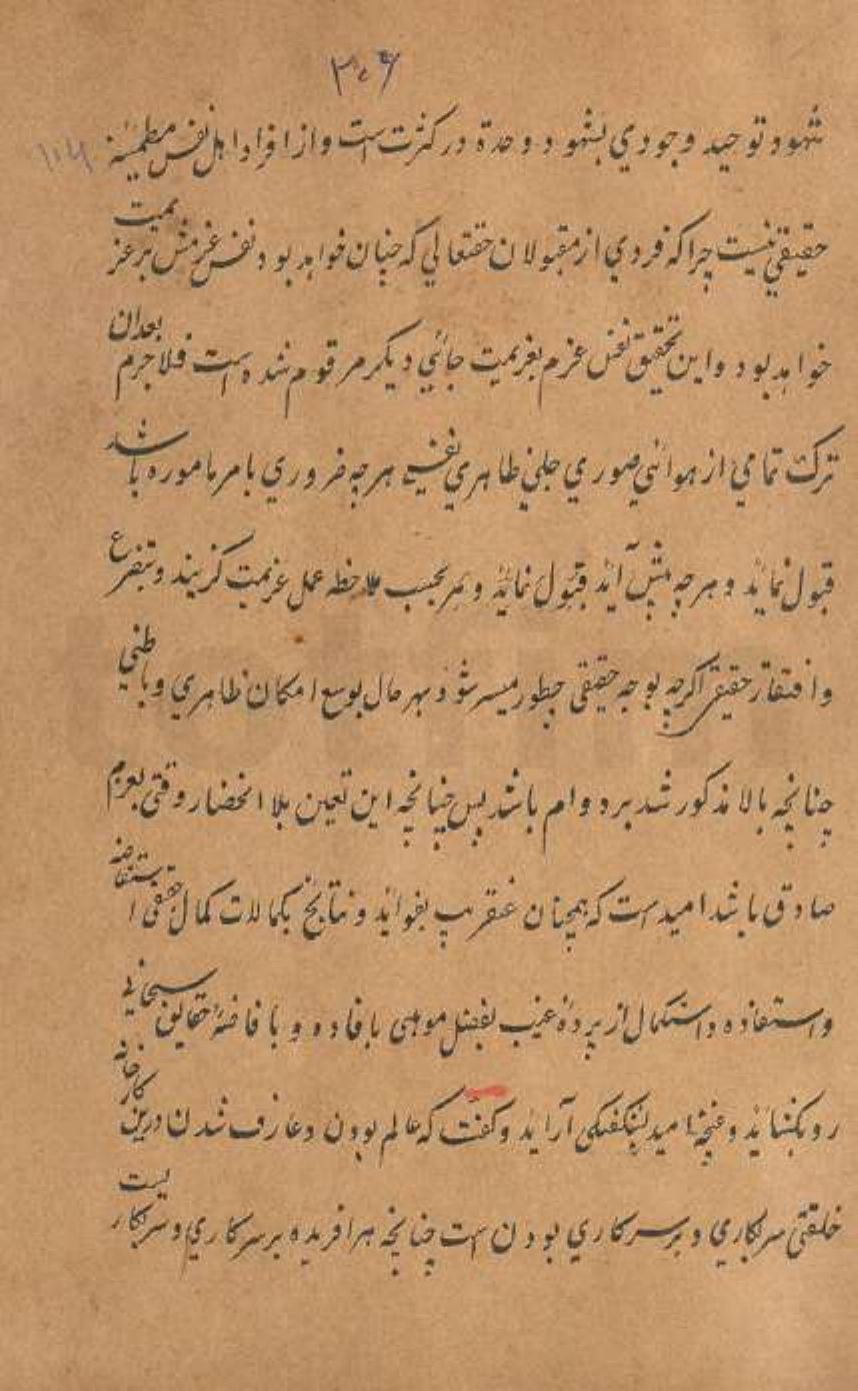 ۳۰۶
شهود توحید وجودي بشهود وحدة در کثرت است واز افراد اهل نفس مطمئنه
حقیقي نیست چرا که فردي از مقبولان حقتعالي که چنان خواهد بود نفس عزمش بر عزیمت
خواهد بود واین تحقیق نفس عزم بعزیمت جائي دیکر مرقوم شده است فلاجرم بعدان
ترک تمامي از هوائي صوري جلي ظاهري نفسي هرچه ضروري بامر ماموره باشد
قبول نماید و هرچه پیش آید قبول نماید و بحسب ملاحظه عمل عزیمت کزیند وتضرع
وافتقار حقیقي اکرچه بوجه حقیقي چطور میسر شود بهر حال بوسع امکان ظاهري وباطني
چنانچه بالا مذکور شد بر دوام باشد پس چنانچه این تعین بلا انحضار وقتي بعزم
صادق باشد امید است که همچنان عنقریب بفوائد ونتایج بکمالات کمال حقیقي استفاضه
واستفاده واستکمال از پردۀ غیب بفضل موهبي بافاده و بافاضۀ حقایق سبحاني
رو بکشاید وغنچۀ امید بشکفتکي آراید وکفت که عالم بودن وعارف شدن درین کارخانه
خلقتي سرکاري و برسرکاري بودن است چنانچه هر افریده برسرکاري وسرکاریست